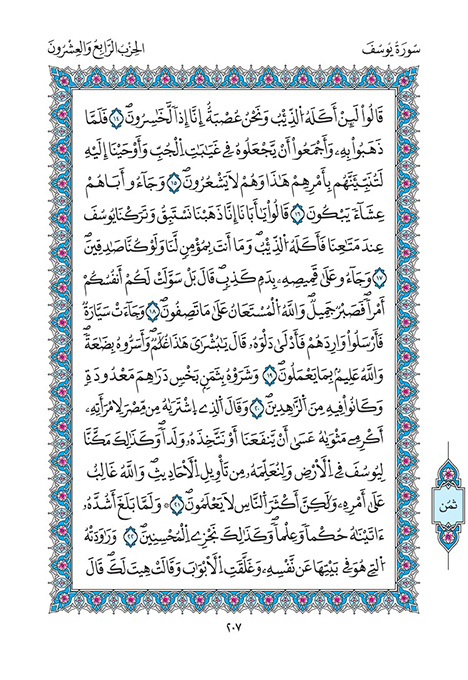 سُورَةُ يُوسُفَ
الحِزْبُ الرَّابِعُ وَالْعِشْرُونَ
قَالُواْ لَئِنْ أَكَلَهُ الذِّيبُ وَنَحْنُ عُصْبَةٌ إِنَّا إِذاً لَّخَٰسِرُونَۖ ١٤ فَلَمَّا
ذَهَبُواْ بِهِۦ وَأَجْمَعُواْ أَنْ يَّجْعَلُوهُ فِے غَيَٰبَٰتِ الْجُبِّ وَأَوْحَيْنَا إِلَيْهِ
لَتُنَبِّيَنَّهُم بِأَمْرِهِمْ هَٰذَا وَهُمْ لَا يَشْعُرُونَۖ ١٥ وَجَآءُو أَبَاهُمْ
عِشَآءً يَبْكُونَۖ ١٦ قَالُواْ يَٰأَبَانَا إِنَّا ذَهَبْنَا نَسْتَبِقُ وَتَرَكْنَا يُوسُفَ
عِندَ مَتَٰعِنَا فَأَكَلَهُ الذِّيبُۖ وَمَا أَنتَ بِمُؤْمِنٖ لَّنَا وَلَوْ كُنَّا صَٰدِقِينَۖ
١٧ وَجَآءُو عَلَىٰ قَمِيصِهِۦ بِدَمٖ كَذِبٖۖ قَالَ بَلْ سَوَّلَتْ لَكُمْ أَنفُسُكُمْ
أَمْراٗ فَصَبْرٞ جَمِيلٞۖ وَاللَّهُ الْمُسْتَعَانُ عَلَىٰ مَا تَصِفُونَۖ ١٨ وَجَآءَتْ سَيَّارَةٞ
فَأَرْسَلُواْ وَارِدَهُمْ فَأَدْلَىٰ دَلْوَهُۥ قَالَ يَٰبُشْرَٰىَ هَٰذَا غُلَٰمٞۖ وَأَسَرُّوهُ بِضَٰعَةٗۖ
وَاللَّهُ عَلِيمٌ بِمَا يَعْمَلُونَۖ ١٩ وَشَرَوْهُ بِثَمَنٍ بَخْسٖ دَرَٰهِمَ مَعْدُودَةٖ
وَكَانُواْ فِيهِ مِنَ الزَّٰهِدِينَۖ ٢٠ وَقَالَ الَّذِے اِشْتَر۪يٰهُ مِن مِّصْرَ لِامْرَأَتِهِۦ
أَكْرِمِے مَثْو۪يٰهُ عَسَىٰ أَنْ يَّنفَعَنَا أَوْ نَتَّخِذَهُۥ وَلَداٗۖ وَكَذَٰلِكَ مَكَّنَّا
لِيُوسُفَ فِے الْأَرْضِ وَلِنُعَلِّمَهُۥ مِن تَأْوِيلِ الْأَحَادِيثِۖ وَاللَّهُ غَالِبٌ
عَلَىٰ أَمْرِهِۦ وَلَٰكِنَّ أَكْثَرَ النَّاسِ لَا يَعْلَمُونَۖ ٢١ وَلَمَّا بَلَغَ أَشُدَّهُۥ
ءَاتَيْنَٰهُ حُكْماٗ وَعِلْماٗۖ وَكَذَٰلِكَ نَجْزِے الْمُحْسِنِينَۖ ٢٢ وَرَٰوَدَتْهُ
الَّتِے هُوَ فِے بَيْتِهَا عَن نَّفْسِهِۦ وَغَلَّقَتِ الْأَبْوَٰبَ وَقَالَتْ هِيتَ لَكَۖ قَالَ
ثُمُن
٢٠٧